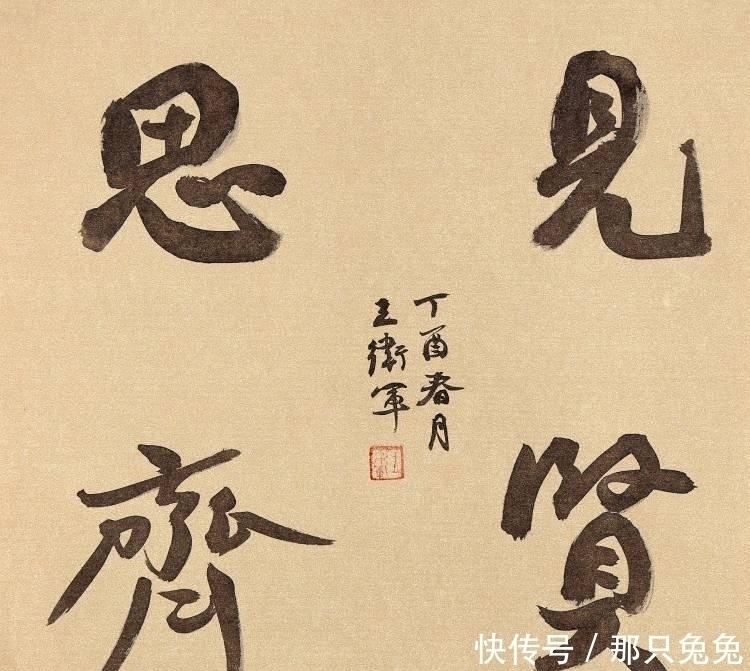 見賢
思齊
丁酉春月
王衛軍
快传号 / 那只兔兔